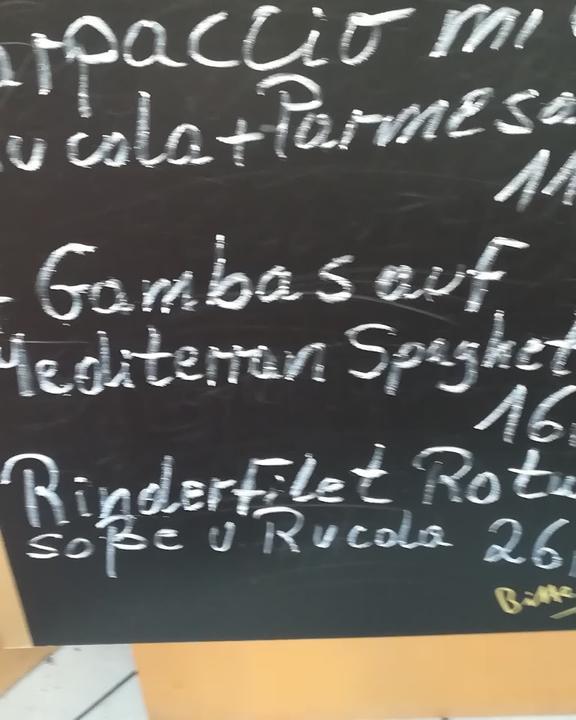 arpaccio mi
ucola + Parmesa
11
- Gambas auf
Mediterran Spaghet
16,
Rinderfilet Rotw
soße u Rucola 26,
Bitte